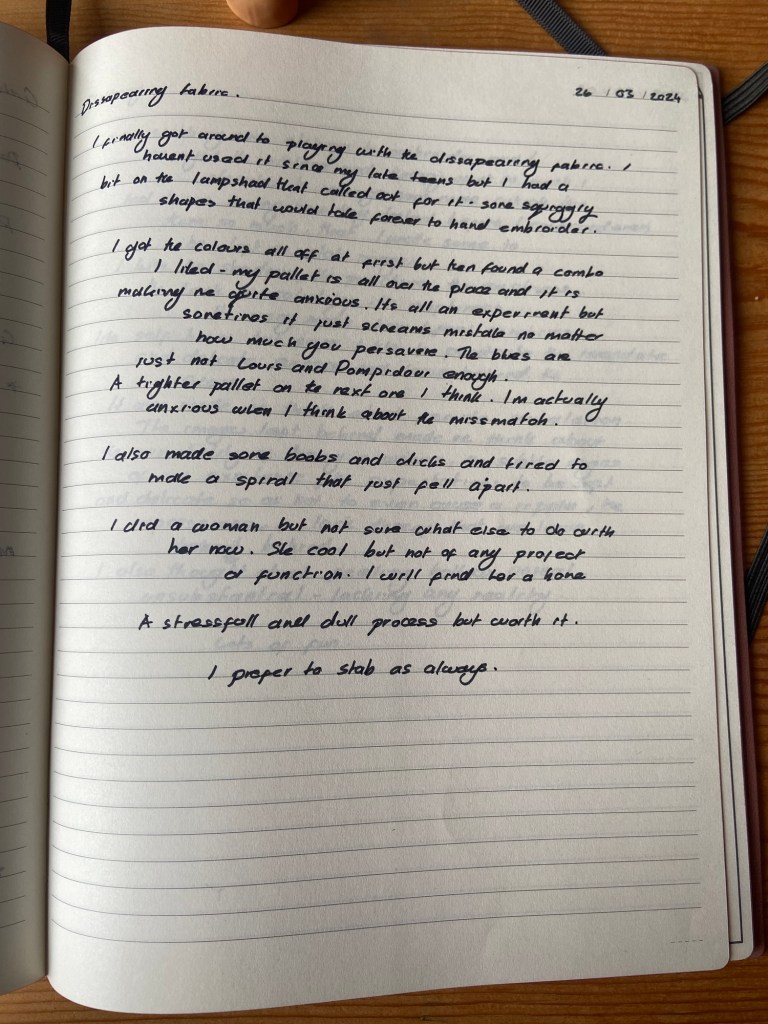 Dissapearing fabric.
26 / 03 / 2024
I finally got around to playing with the dissapearing fabric. I
havent used it since my late teens but I had a
bit on the lampshad that called out for it. some squiggly
shapes that would take forever to hand embroider.
I got the colours all off at first but then found a combo
I liked - my pallet is all over the place and it is
making me quite anxious. Its all an experiment but
sometimes it just screams mistake no matter
how much you persavere. The blues are
just not Lours and Pompidour enough.
A tighter pallet on the next one I think. Im actually
anxious when I think about the missmatch.
I also made some boobs and dicks and tired to
make a spiral that just fell apart.
I did a woman but not sure what else to do with
her now. She cool but not of any project
or function. I will find her a home
A stressfull and dull process but worth it.
I preper to stab as always.